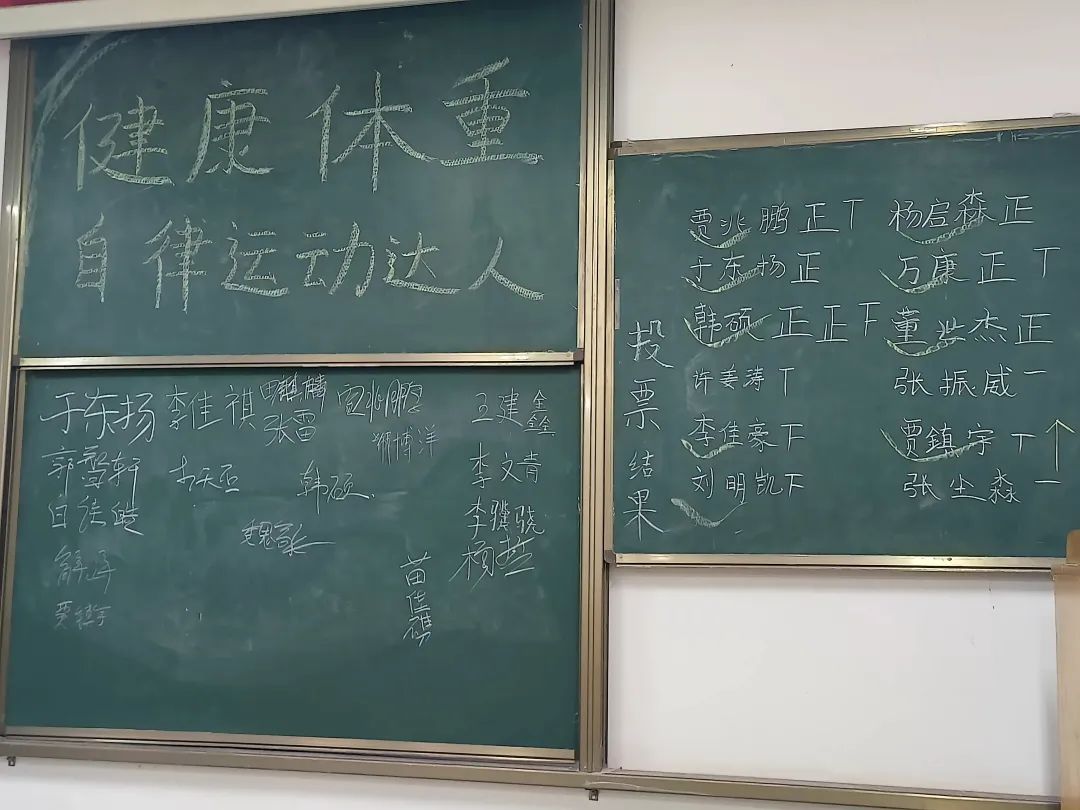 健康体重
自律运动达人
于东扬 李佳祺 田麒麟 贾兆鹏 王建鑫
张雷 博洋
轩 韩硕 李文青
李骥骁
杨
苗佳
投票结果
贾兆鹏 正丅 杨启森 正
于东扬 正 万康 正丅
韩硕 正正下 董兴杰 正
许姜涛 丅 张振威 一
李佳豪 下 贾镇宇 丅
刘明凯 下 张尘淼 一